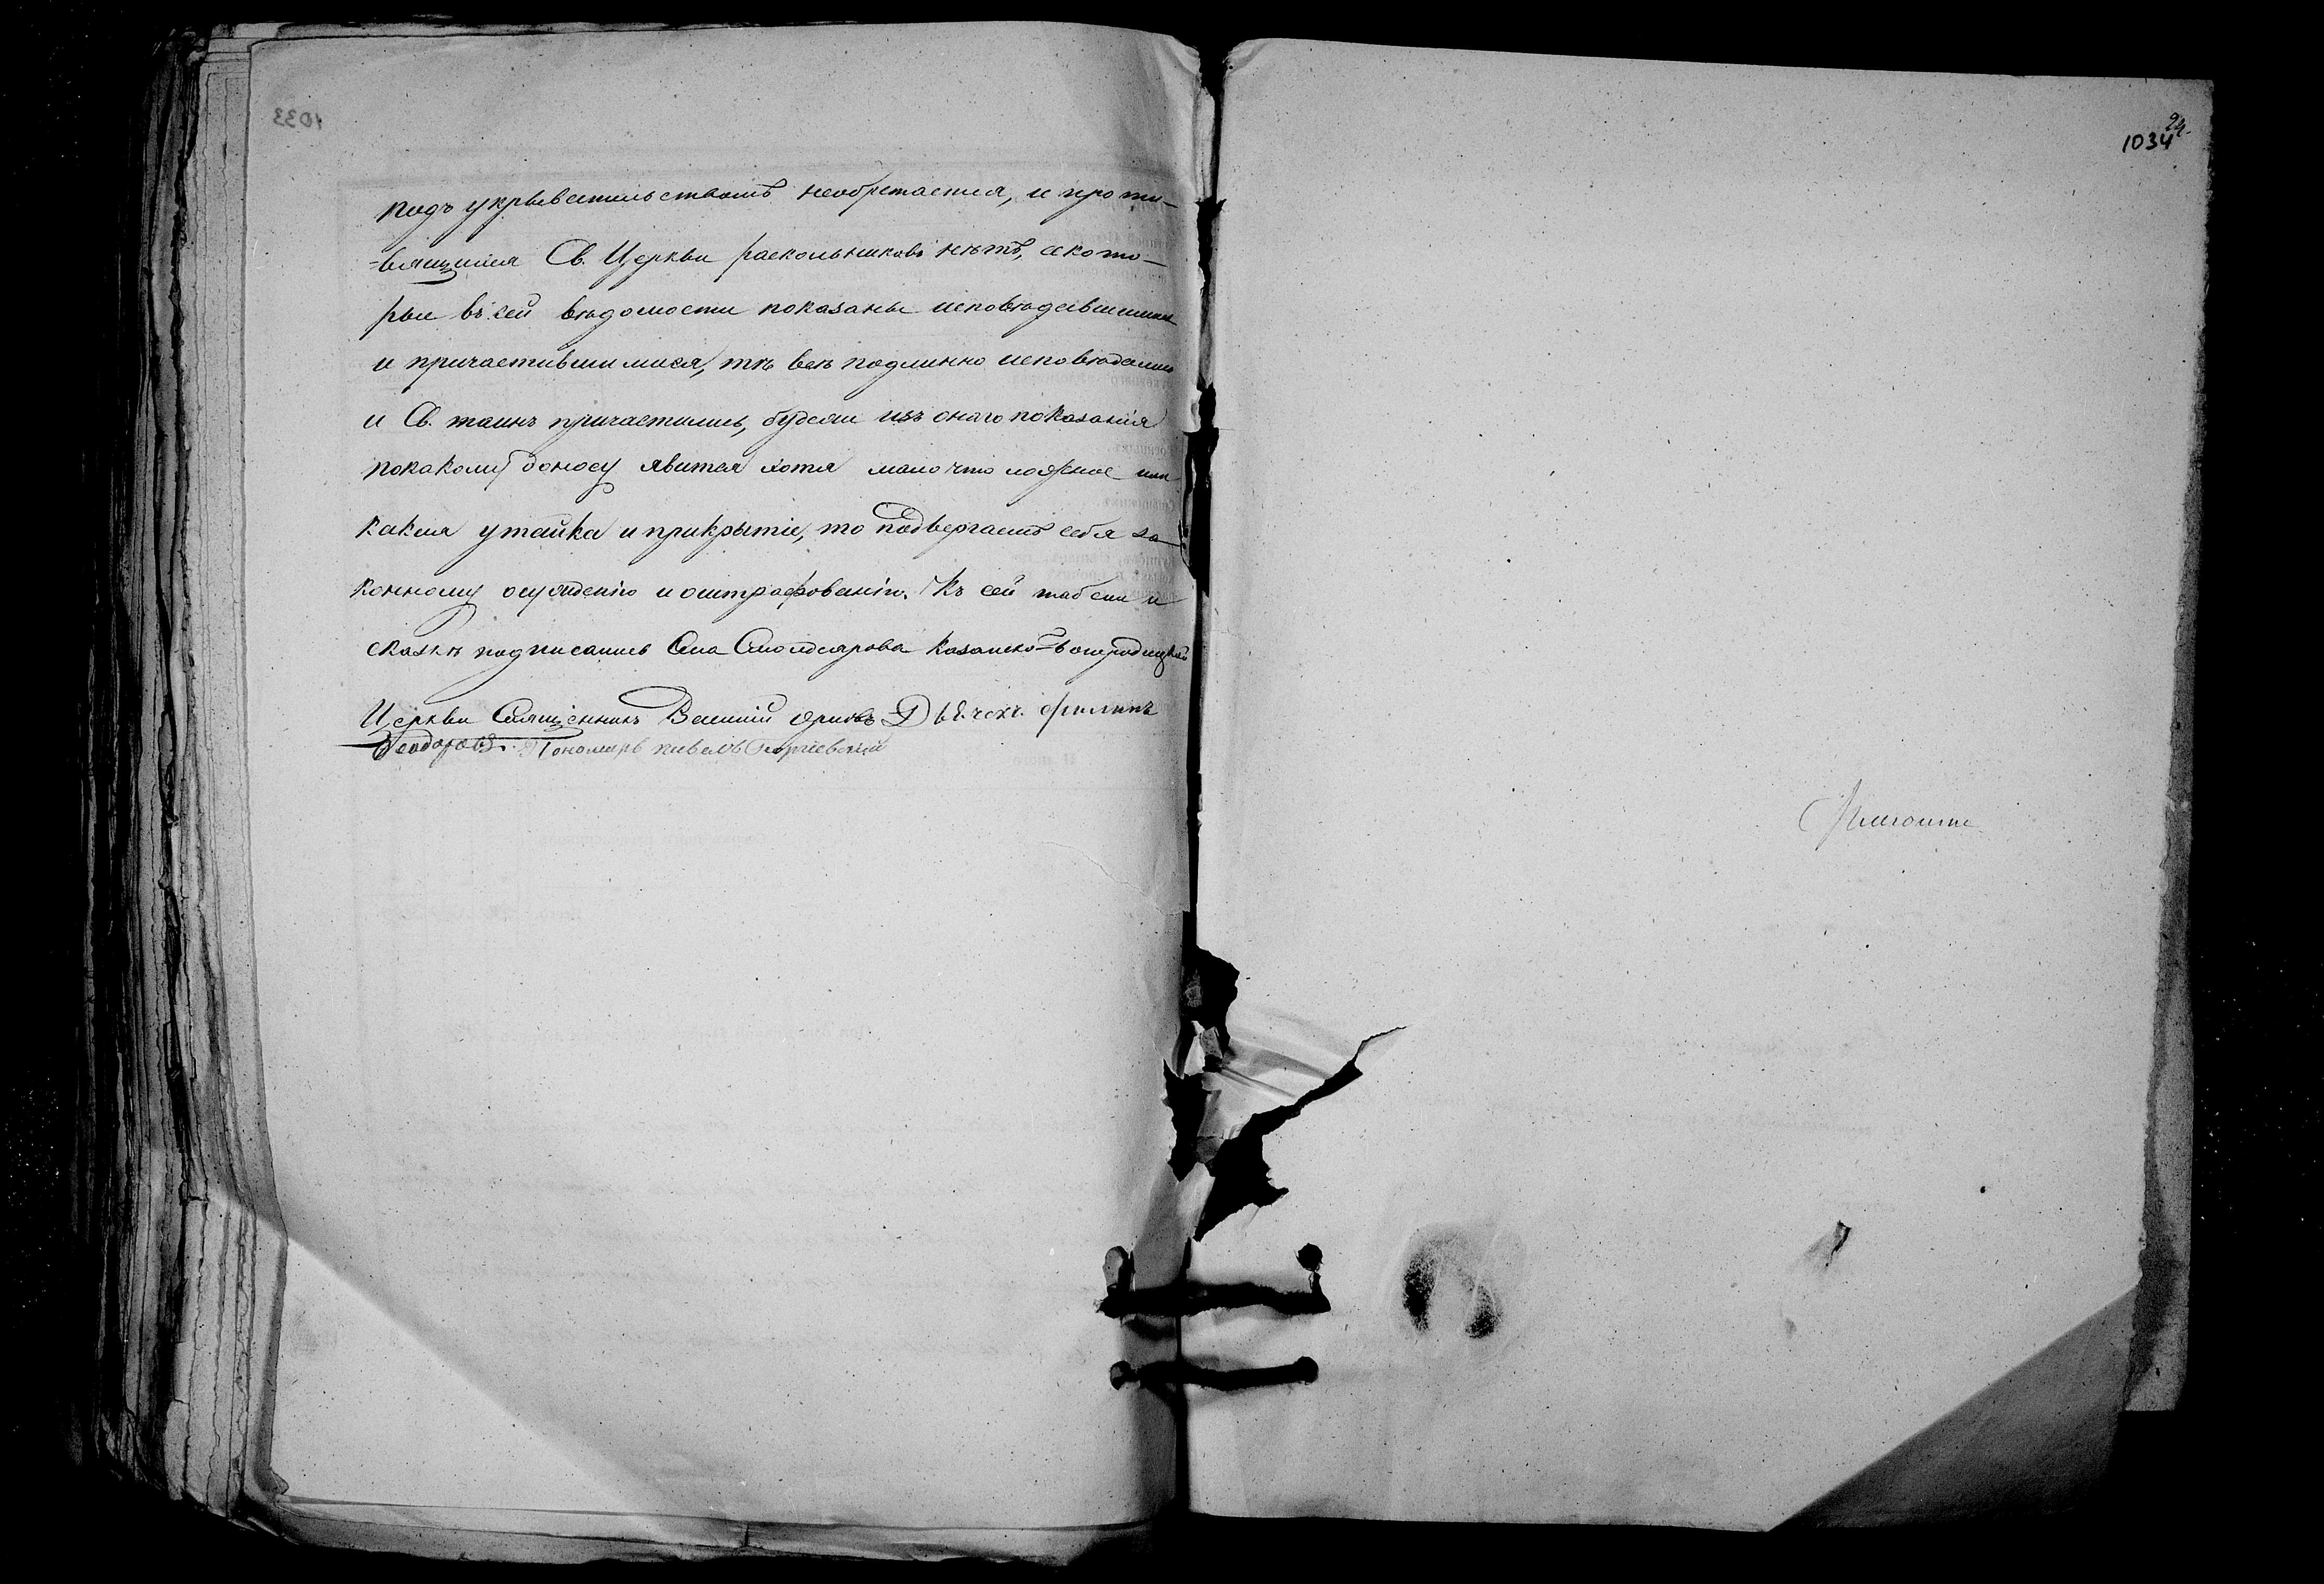 подъ укрывательствомъ необретается, и проти-
=вящихся Св. Церкви раскольниковъ нѣтъ, а кото-
рые въ сей вѣдомости показаны исповѣдавшимися
и причастившимися, тѣ всѣ подлинно исповѣдались
и Св. таинъ причастились, будели изъ онаго показанія
покакому доносу явится хотя мало что ложное или
какая утайка и прикрытіе, то подвергаемъ себя за-
конному осужденію и оштрафованію. Къ сей табели и
сказкѣ подписались Села Казанско-Богородицкой
Церкви Священникъ Василій Дьячекъ Филипъ
Ѳеодоровъ. Пономарь Павелъ Георгіевскій
24.
1034